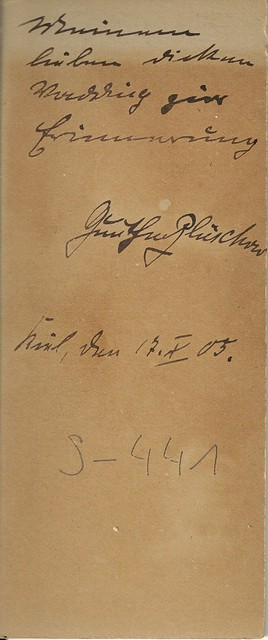 Meinem
lieben dicken
Vadding zur
Erinnerung
Gunther Plüschow
Kiel, den 17. X 05.
S-441